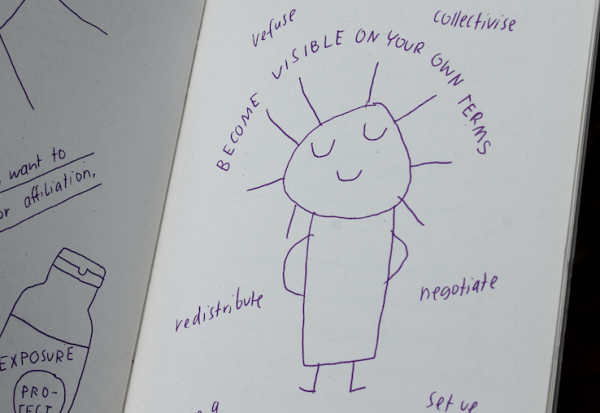 want to
or affiliation,
EXPOSURE
PRO-
TECT
refuse
collectivise
BECOME VISIBLE ON YOUR OWN TERMS
redistribute
negotiate
set up